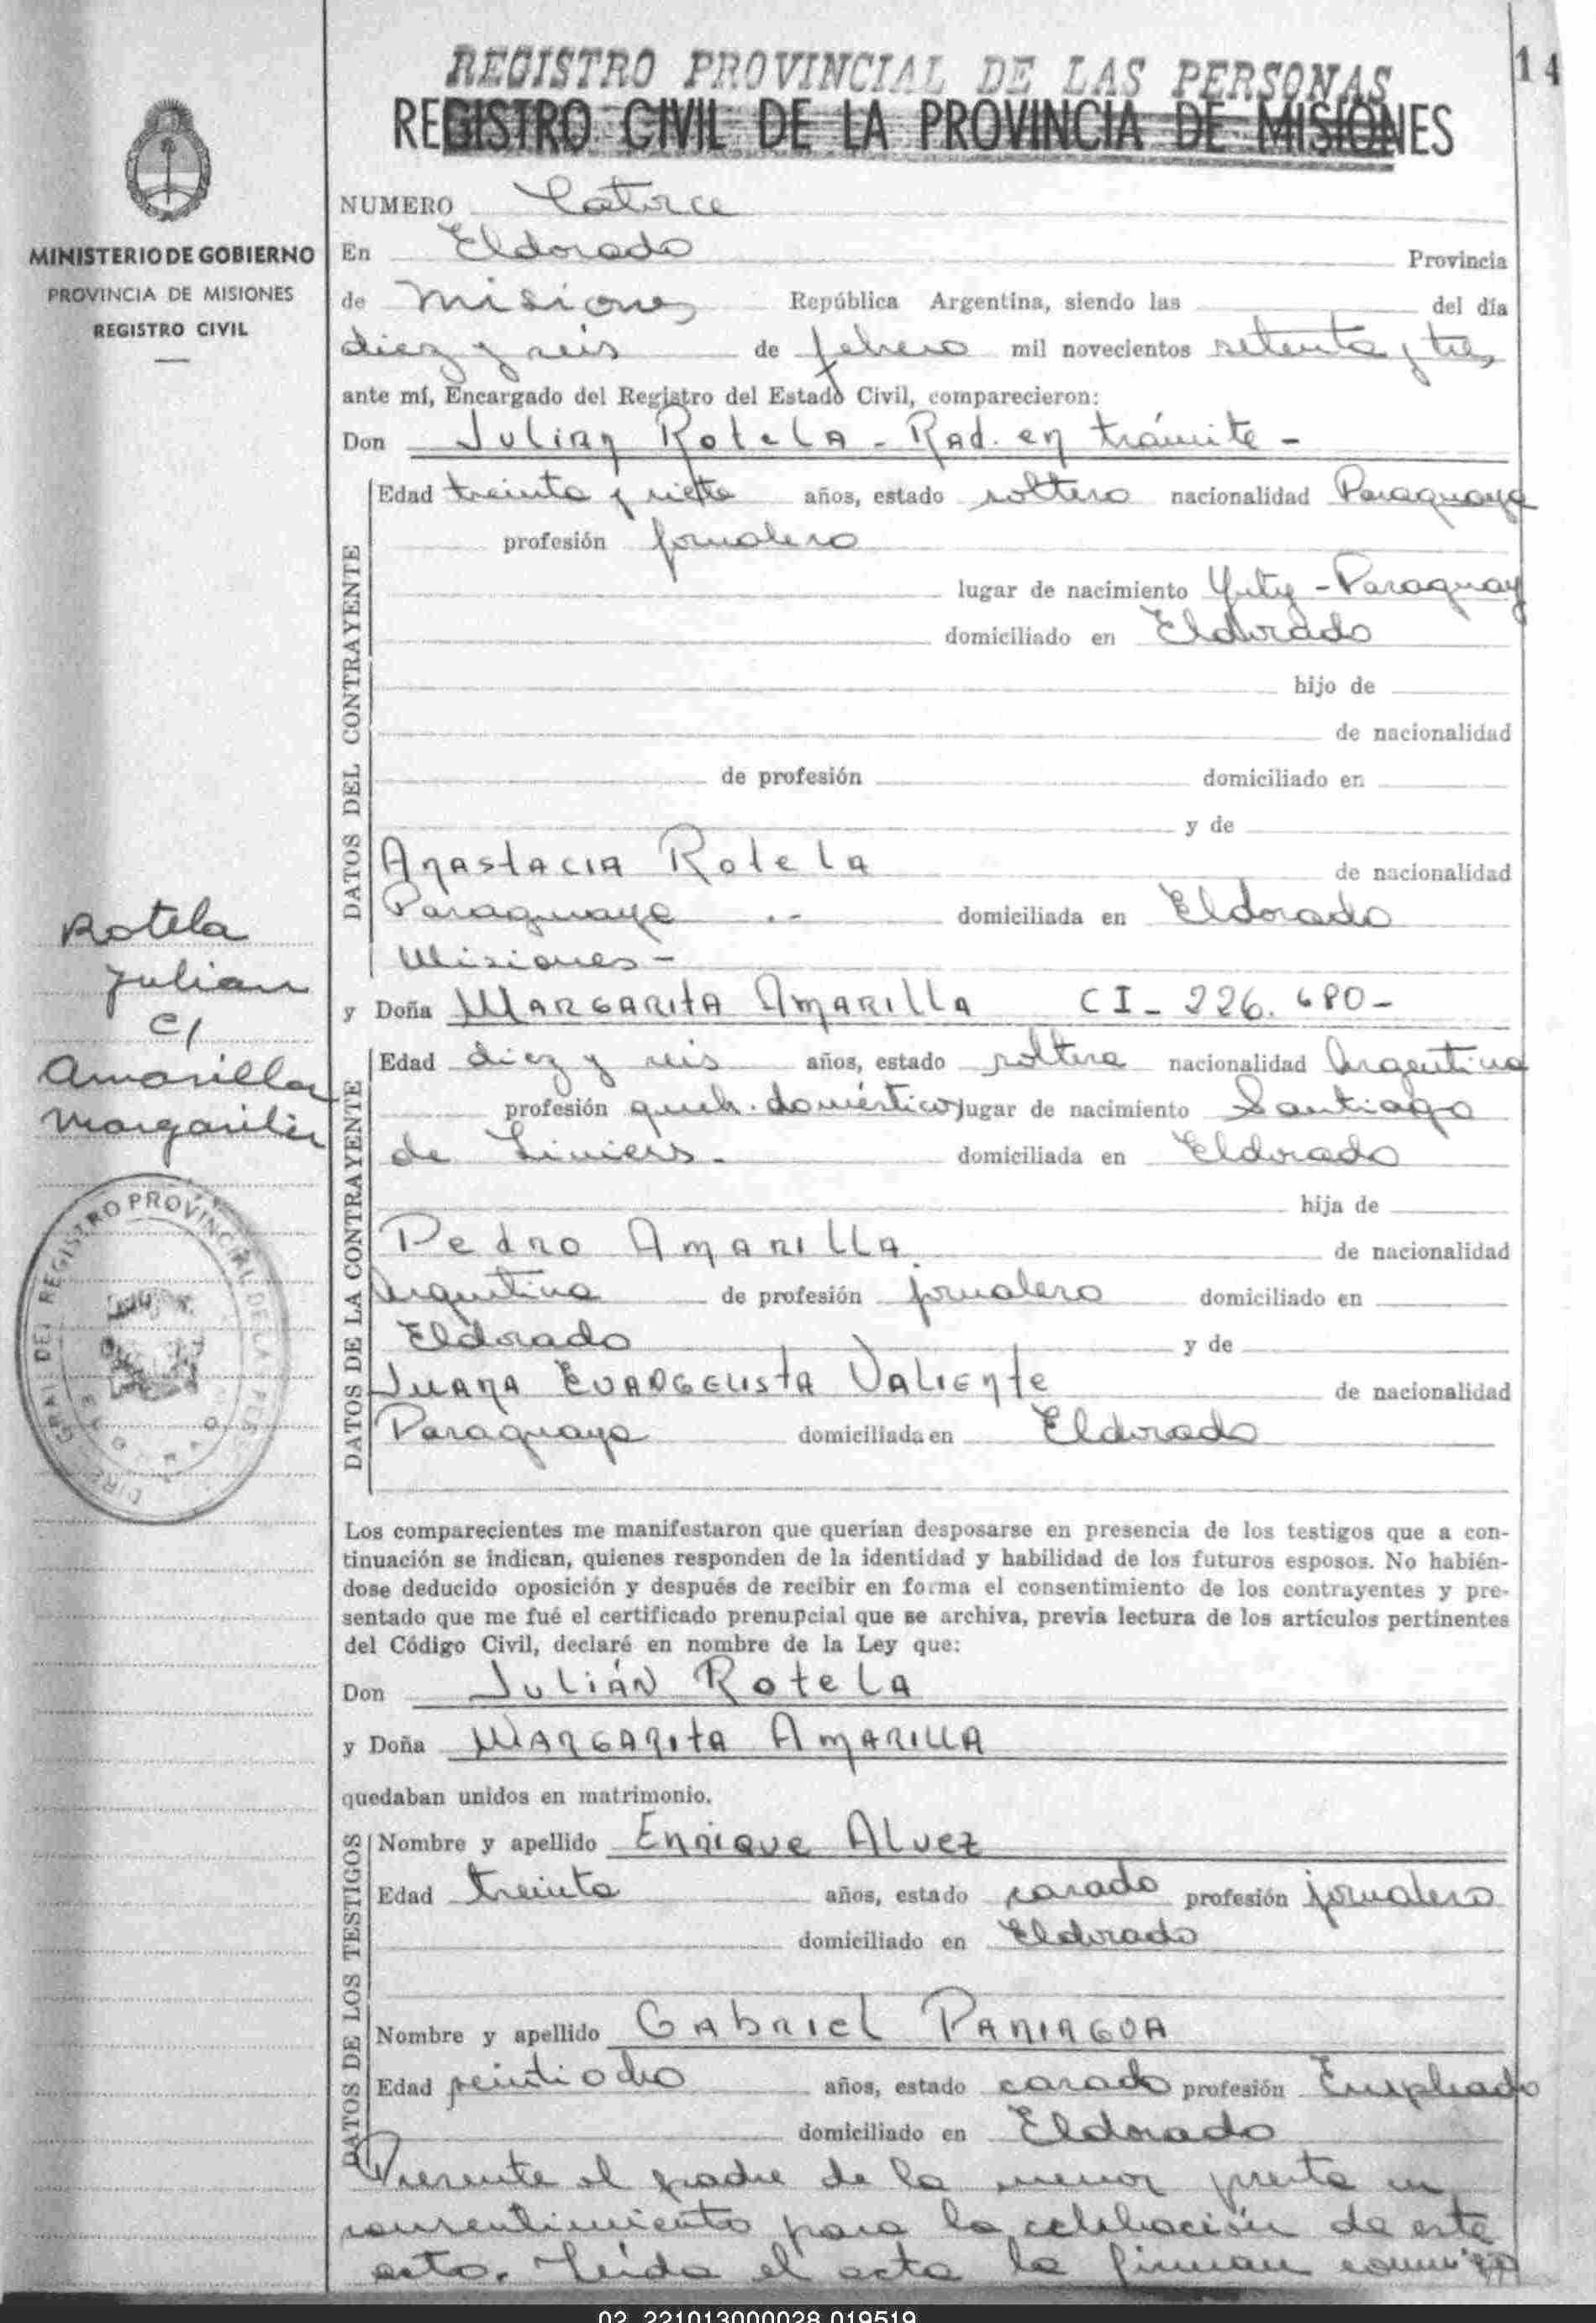 14
REGISTRO PROVINCIAL DE LAS PERSONAS
REGISTRO CIVIL DE LA PROVINCIA DE MISIONES
MINISTERIO DE GOBIERNO
PROVINCIA DE MISIONES
REGISTRO CIVIL
NUMERO Catorce
En Eldorado Provincia
de Misiones República Argentina, siendo las del día
diez y seis de febrero mil novecientos setenta y tres
ante mí, Encargado del Registro del Estado Civil, comparecieron:
Don Julian Rotela - Rad. en trámite -
DATOS DEL CONTRAYENTE
Edad treinta y siete años, estado soltero nacionalidad Paraguaya
profesión jornalero
lugar de nacimiento Yuty - Paraguay
domiciliado en Eldorado
hijo de
de nacionalidad
de profesión domiciliado en
y de
Anastacia Rotela de nacionalidad
Paraguaya domiciliada en Eldorado
Misiones -
Rotela
Julian
c/
Amarilla
Margarita
y Doña Margarita Amarilla CI - 226.680 -
DATOS DE LA CONTRAYENTE
Edad diez y seis años, estado soltera nacionalidad Argentina
profesión queh. domésticos lugar de nacimiento Santiago
de Liniers - domiciliada en Eldorado
hija de
Pedro Amarilla de nacionalidad
Argentina de profesión jornalero domiciliado en
Eldorado y de
Juana Evangelista Valiente de nacionalidad
Paraguaya domiciliada en Eldorado
DIREC GRAL DEL REGISTRO PROVINCIAL DE LA PERS
Los comparecientes me manifestaron que querían desposarse en presencia de los testigos que a con-
tinuación se indican, quienes responden de la identidad y habilidad de los futuros esposos. No habién-
dose deducido oposición y después de recibir en forma el consentimiento de los contrayentes y pre-
sentado que me fué el certificado prenupcial que se archiva, previa lectura de los artículos pertinentes
del Código Civil, declaré en nombre de la Ley que:
Don Julián Rotela
y Doña Margarita Amarilla
quedaban unidos en matrimonio.
DATOS DE LOS TESTIGOS
Nombre y apellido Enrique Alvez
Edad treinta años, estado casado profesión jornalero
domiciliado en Eldorado
Nombre y apellido Gabriel Paniagua
Edad veintiocho años, estado casado profesión Empleado
domiciliado en Eldorado
Presente el padre de la menor presta su
consentimiento para la celebración de este
acto. Leída el acta la firman conmigo
02 221013000028 019519